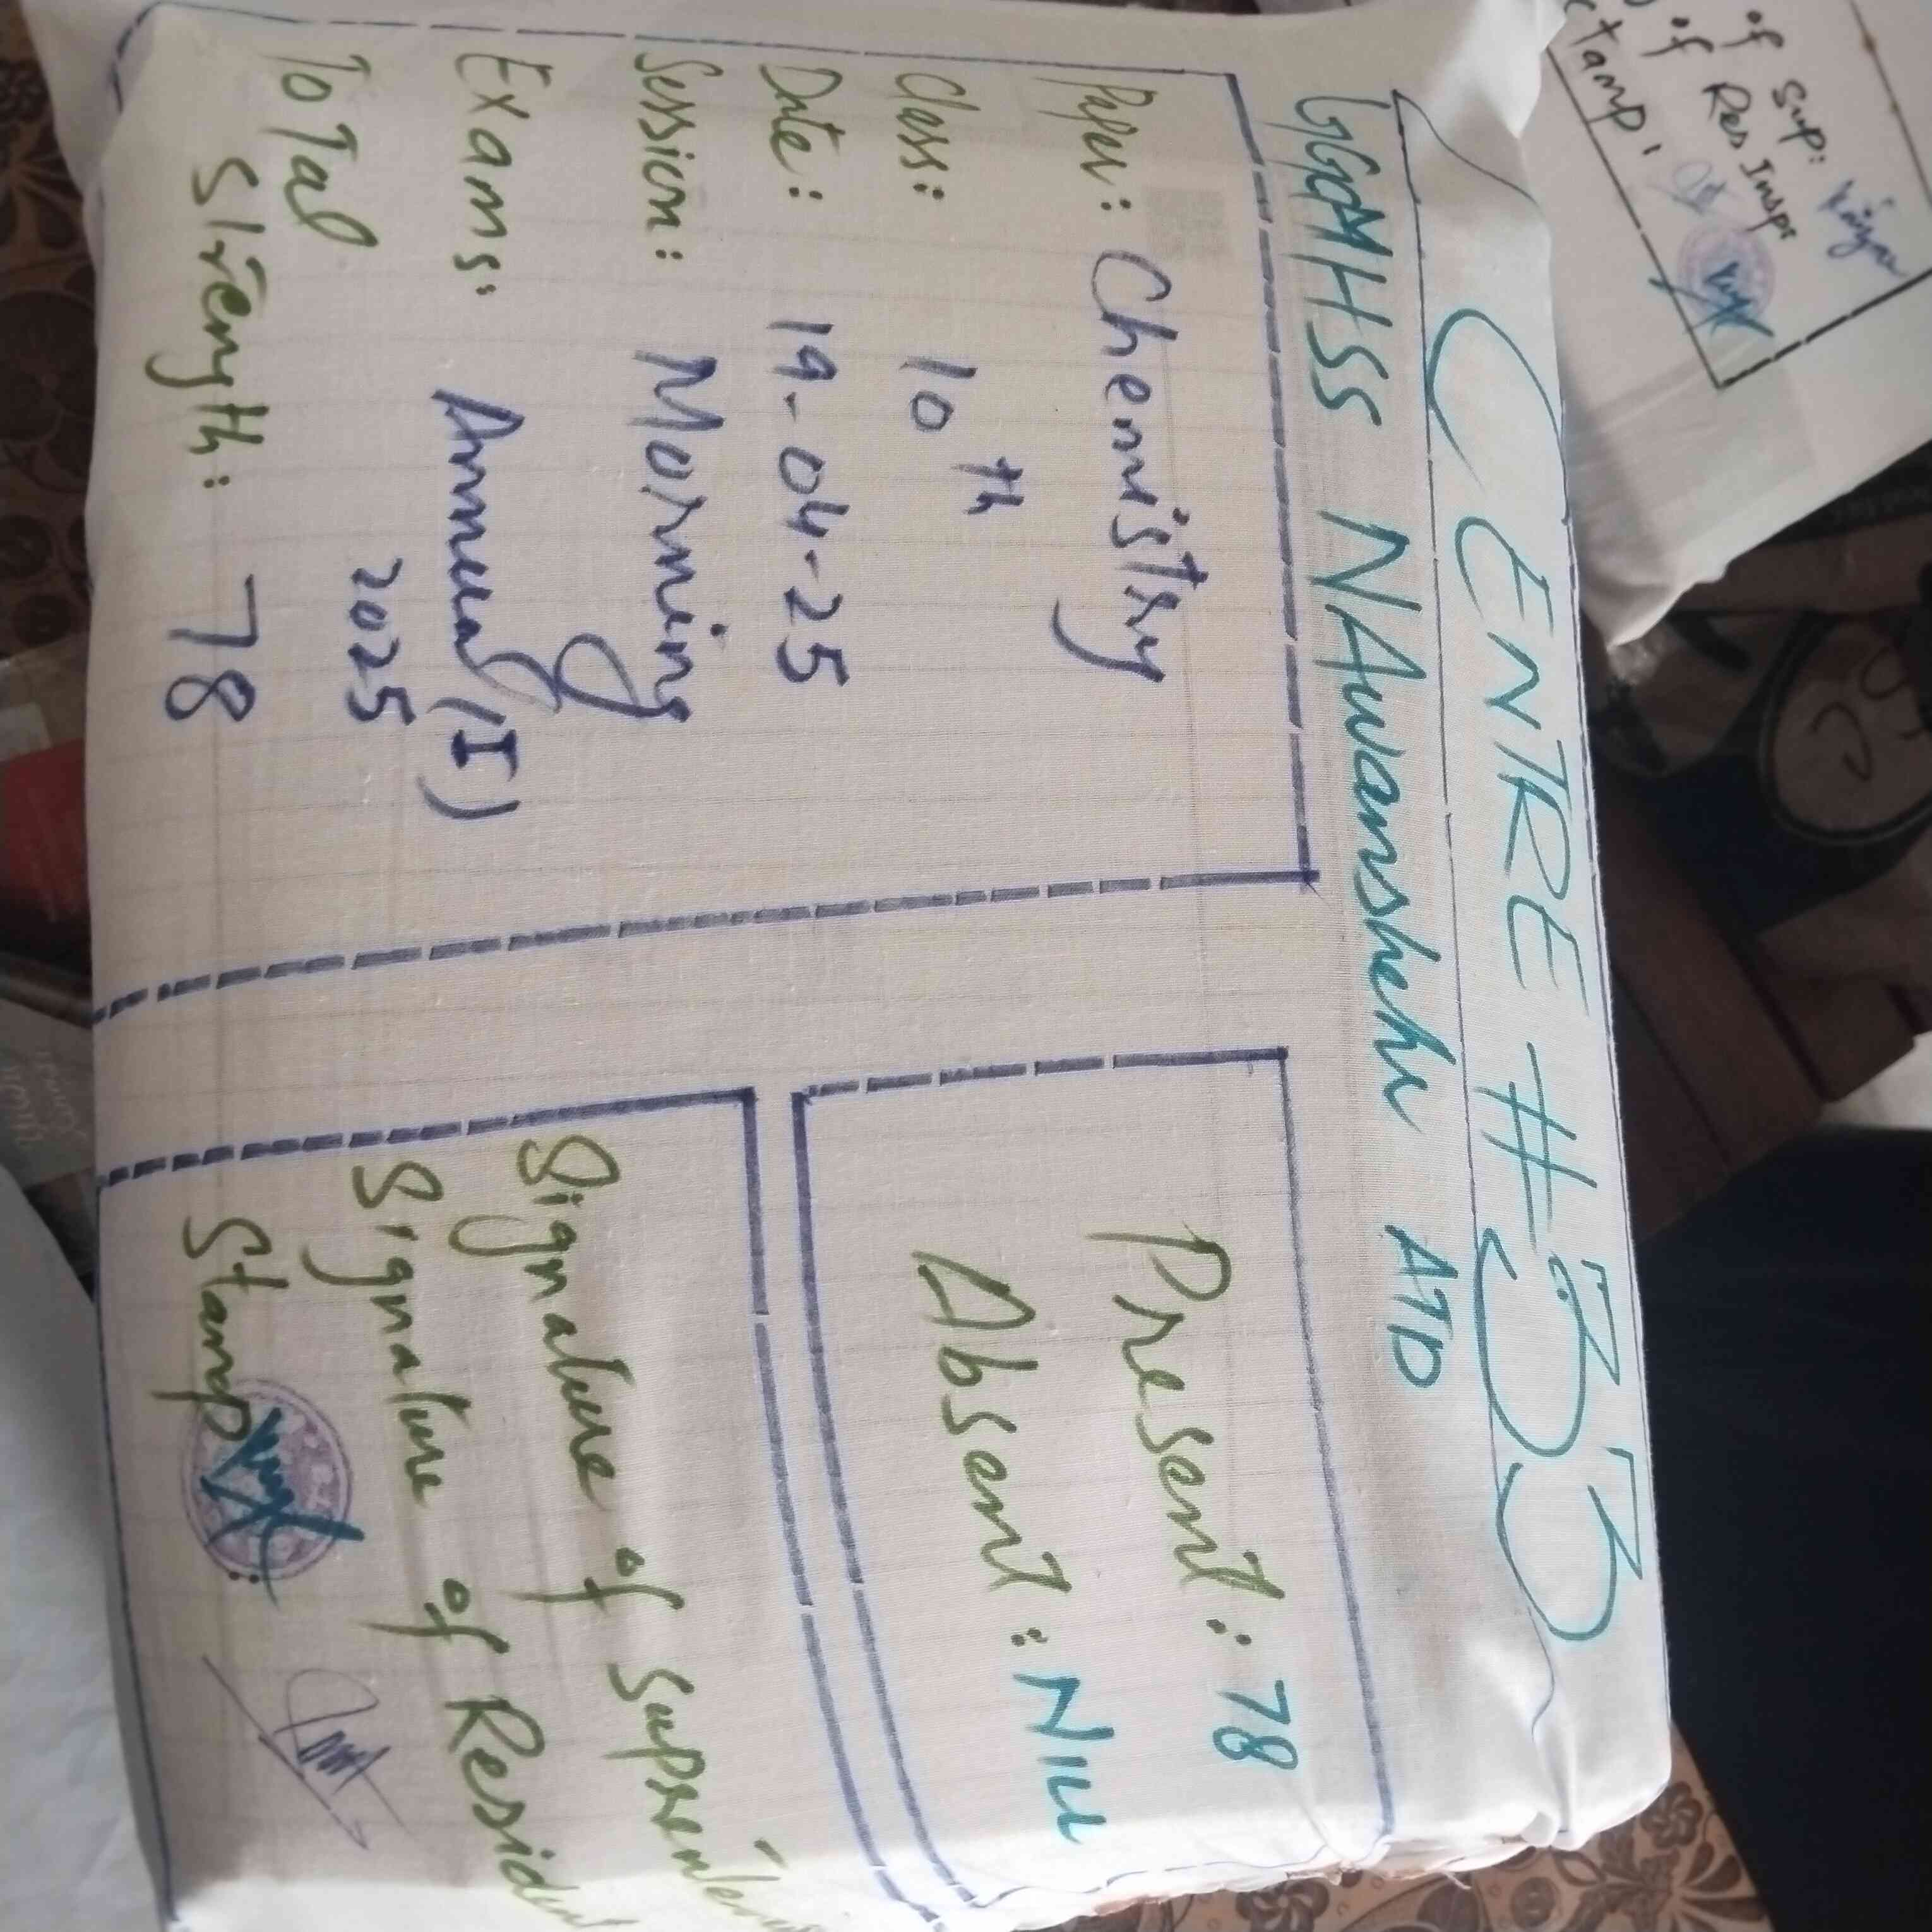 CENTRE # 33
GGMHSS NAwansheher ATD
Paper: Chemistry
Class: 10th
Date: 19-04-25
Session: Morning
Exams: Annual (I)
2025
ToTal
Strength: 78
Present: 78
Absent: NILL
Signature of
Signature of
Stamp:
of Sup:
of Res Inspr